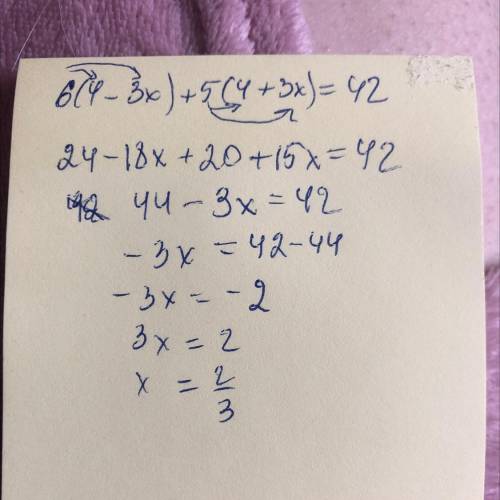 6(4 - 3x) + 5(4 + 3x) = 42
24 - 18x + 20 + 15x = 42
44 - 3x = 42
- 3x = 42 - 44
- 3x = - 2
3x = 2
x = 2/3